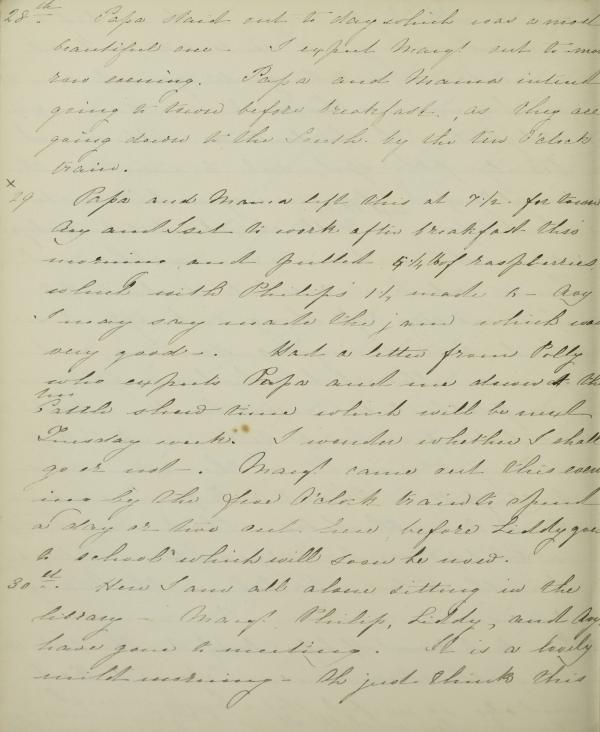 28th. Papa staid out to day which was a most
beautiful one - I expect Margt out to-mor
row evening. Papa and Mama intend
going to town before breakfast, as they are
going down to the South by the ten O'clock
train.
x
29 Papa and Mama left this at 7½ for town
Any and I set to work after breakfast this
morning and pulled 5¼ lb of raspberries
which with Philip's 1¼ made 6 - Any
I may say made the jam which was
very good -. Had a letter from Polly
who expects Papa and me down at the
Cattle show time which will be next
Tuesday week. I wonder whether I shall
go or not -. Margt came out this even
ing by the five O'clock train to spend
a day or two out here before Liddy goes
to school which will soon be now.
30th. Here I am all alone sitting in the
library - Margt. Philip, Liddy, and Any
have gone to meeting. It is a lovely
mild morning - Oh just think this